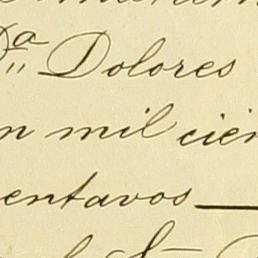 Dª Dolores
n mil cien
entavos